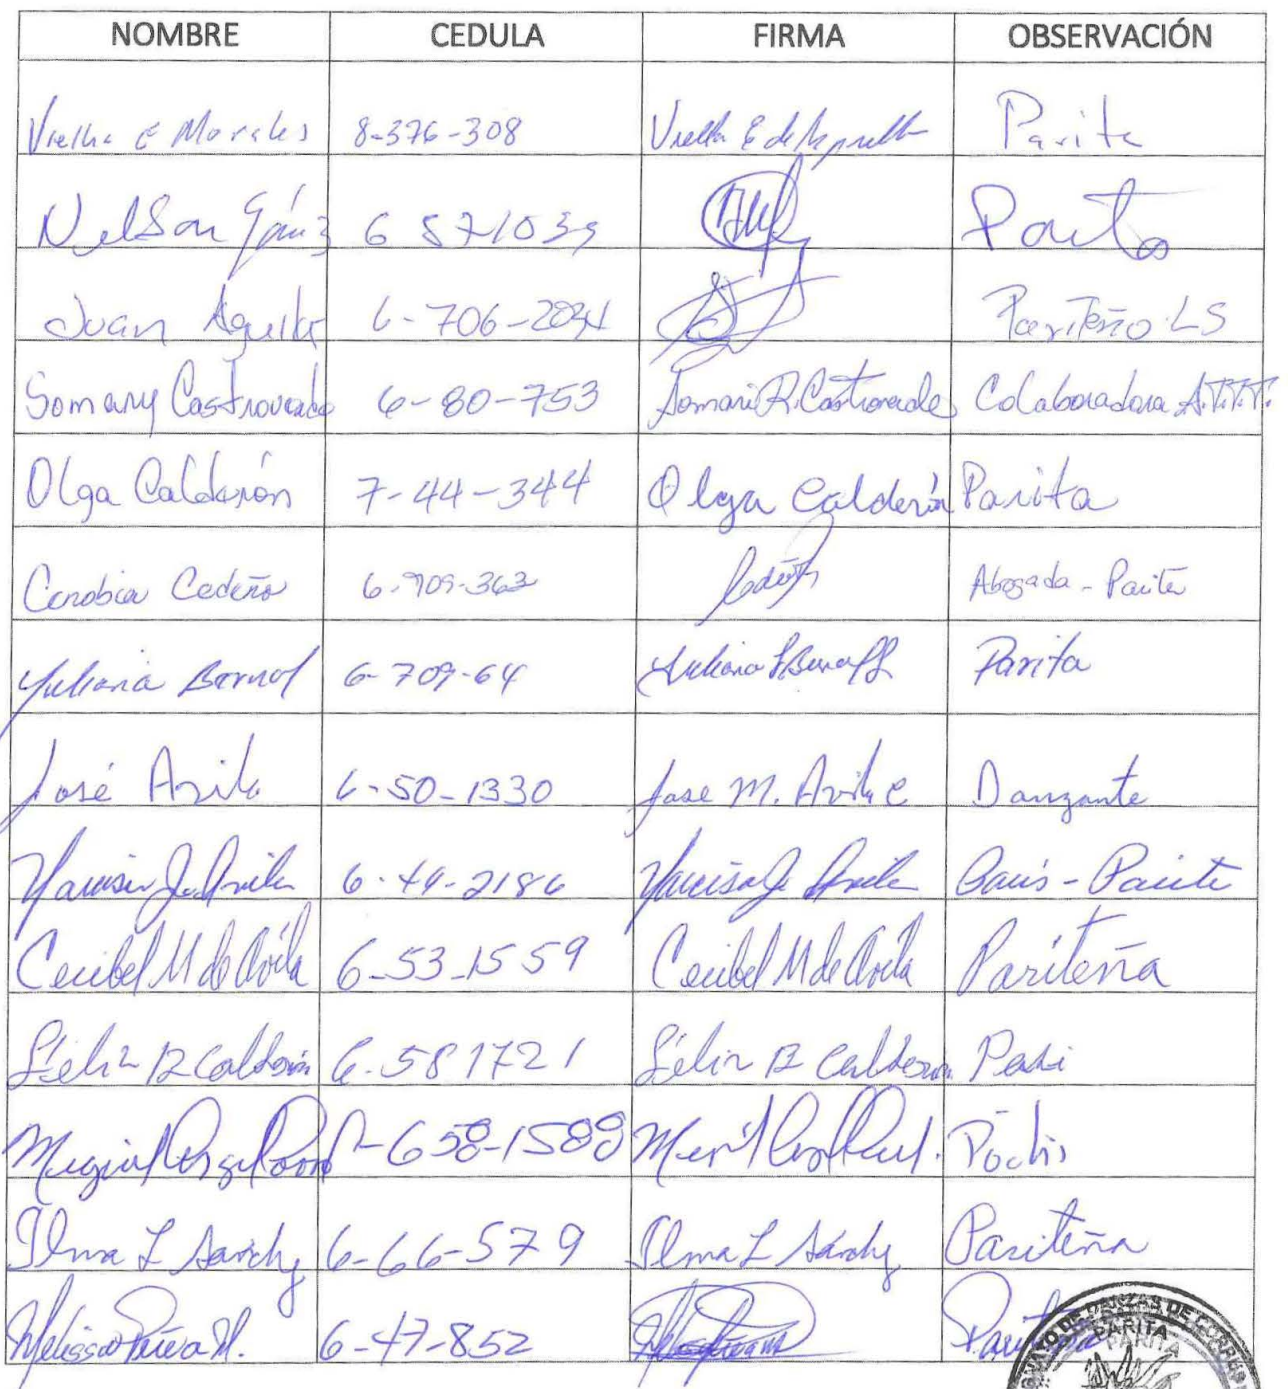 NOMBRE CEDULA FIRMA OBSERVACIÓN
Vielka E Morales 8-376-308 Vielka E de Parita
Nelson Gómez 6 57 1039 Parita
Juan Aguilar 6-706-2034 Pariteño LS
Somary Castroverde 6-80-753 Somari R. Castroverde Colaboradora A.T.T.T.
Olga Calderón 7-44-344 Olga Calderón Parita
Cenobia Cedeño 6-709-363 Abogada - Parita
Yuliana Bernal 6-709-64 Yuliana Parita
José Avila 6-50-1330 Jose M. Avila C Danzante
Narcisa J. Avila 6-49-2186 Narcisa J. Avila París - Parita
Cecibel M de Ávila 6-53-1559 Cecibel M de Ávila Pariteña
Félix B Calderón 6-58 1721 Félix B Calderón
658-1588
Ilma L Sánchz 6-66-579 Ilma L Sánchz Pariteña
Melissa M. 6-47-852 Pariteña
DANZAS DE CORPUS
PARITA